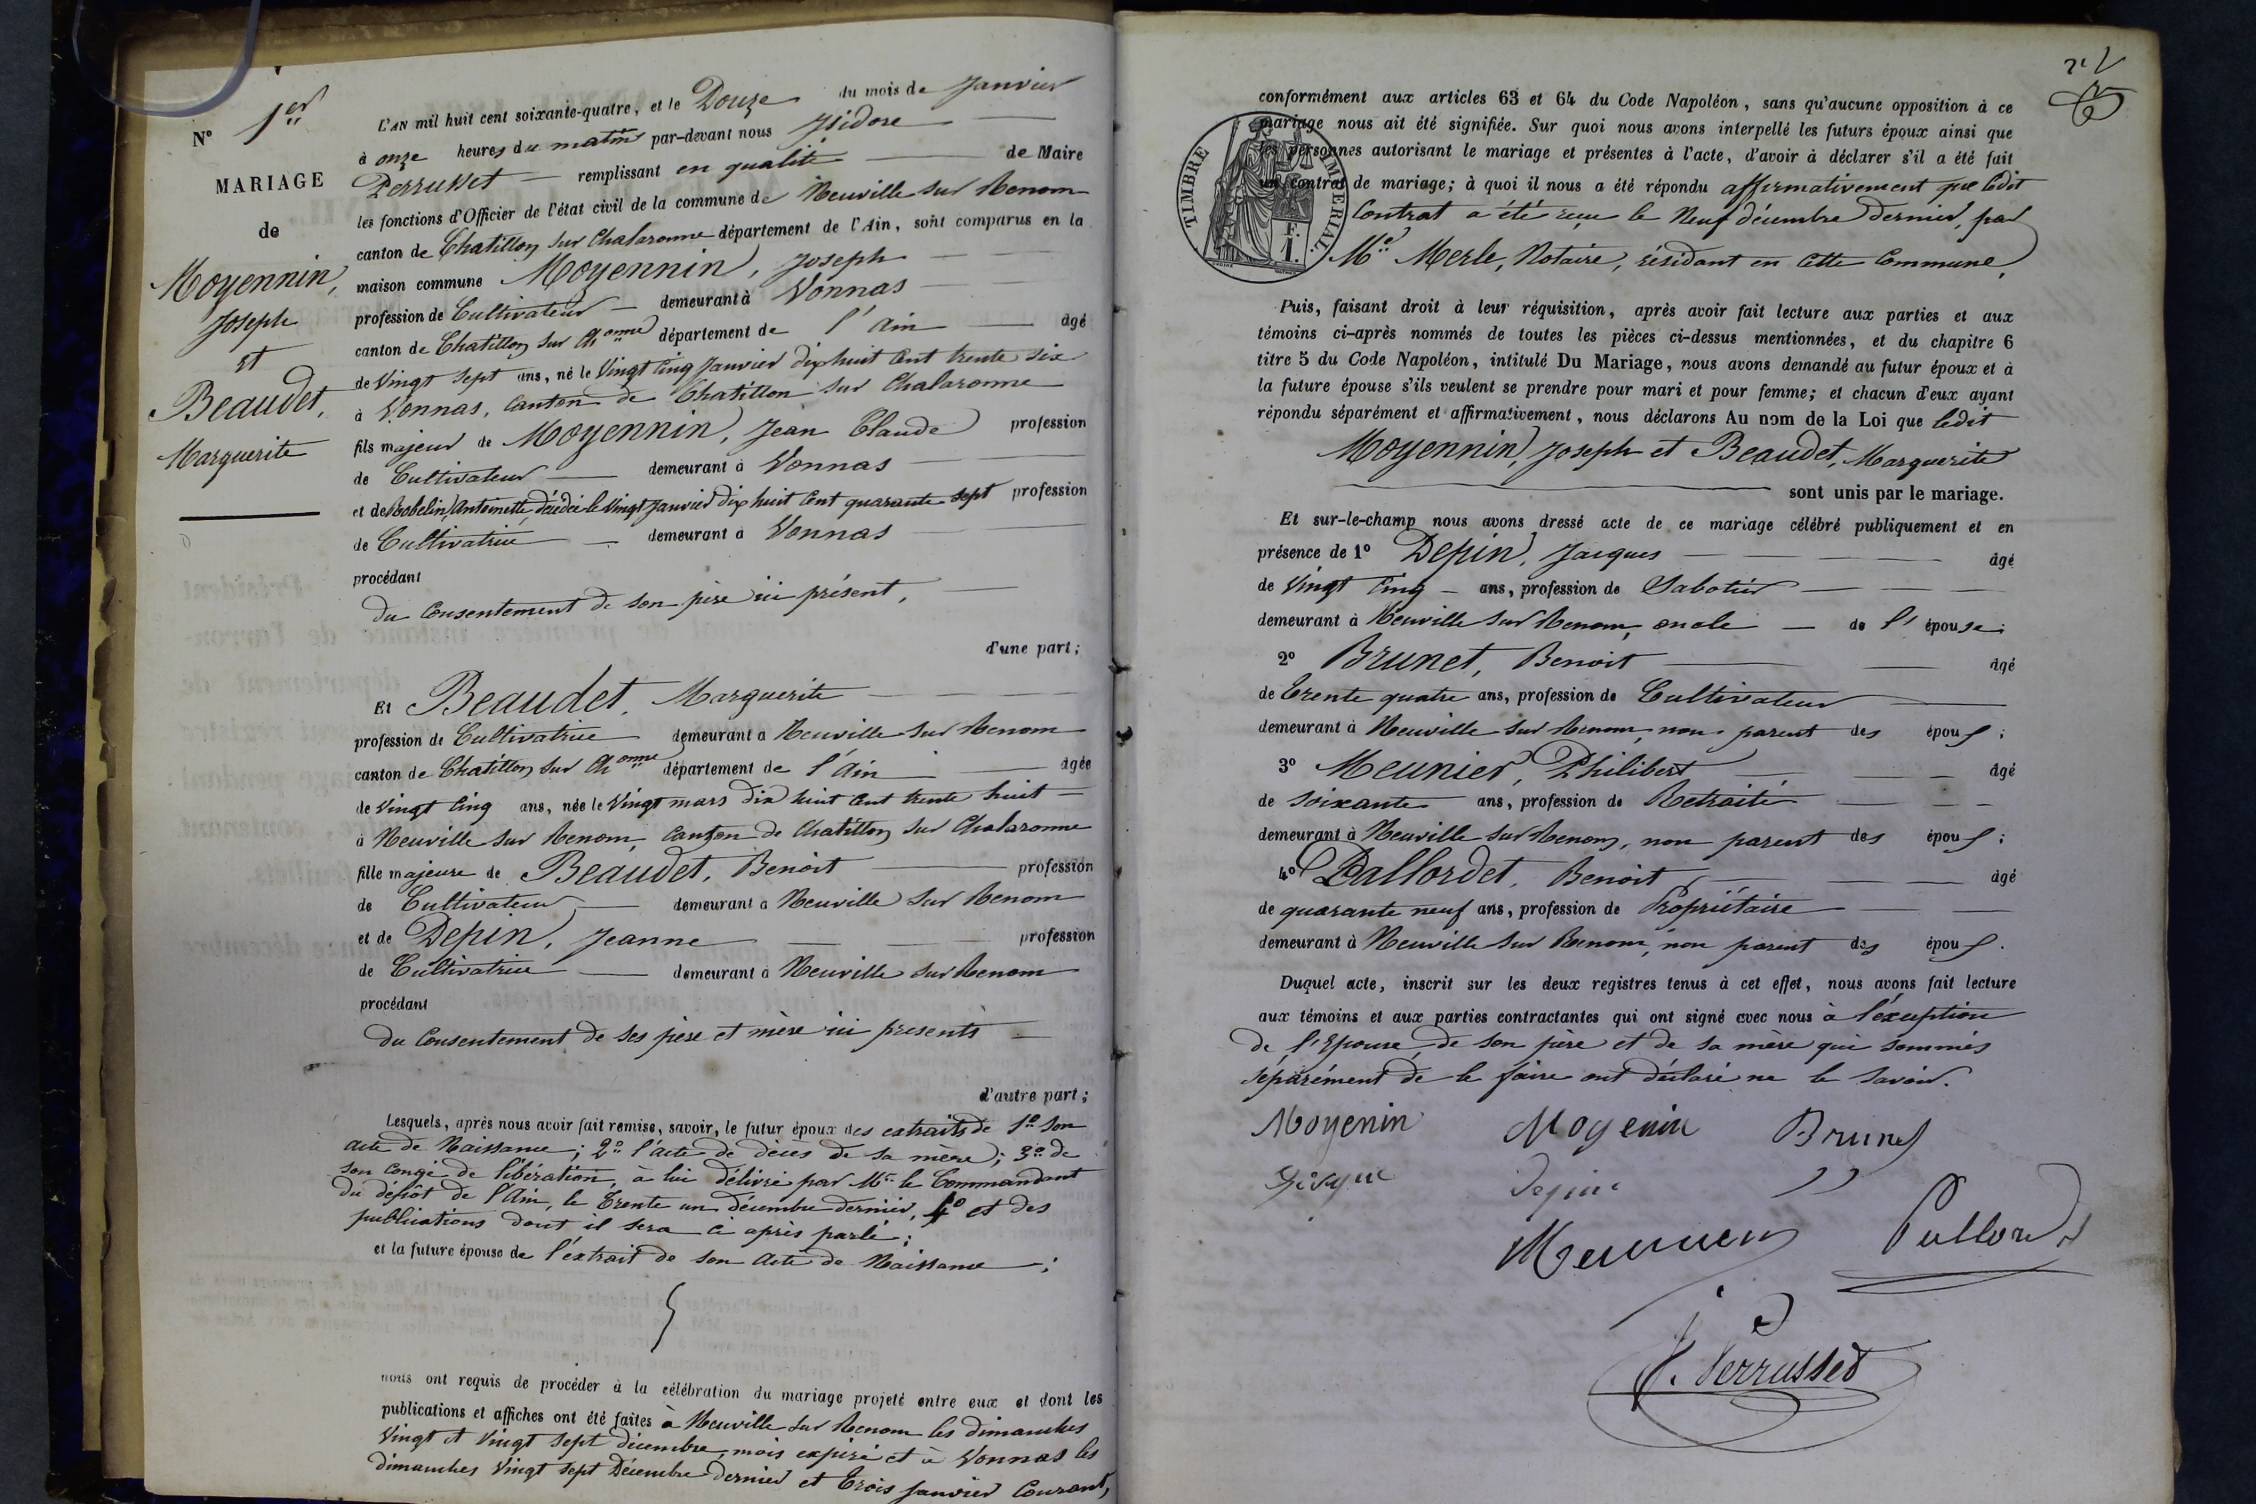 N° 1er
MARIAGE
de
Moyennin,
Joseph
et
Beaudet,
Marguerite
L'AN mil huit cent soixante-quatre, et le Douze du mois de Janvier
à onze heures du matin par-devant nous Isidore
Perrusset remplissant en qualité de Maire
les fonctions d'Officier de l'état civil de la commune de Neuville sur Renom
canton de Chatillon sur Chalaronne département de l'Ain, sont comparus en la
maison commune Moyennin, Joseph
profession de Cultivateur demeurant à Vonnas
canton de Chatillon sur Chonne département de l'Ain âgé
de Vingt sept ans, né le Vingt cinq Janvier dix huit cent trente six
à Vonnas, Canton de Chatillon sur Chalaronne
fils majeur de Moyennin, Jean Claude profession
de Cultivateur demeurant à Vonnas
et de Bobelin, Antoinette, décédée le Vingt Janvier dix huit cent quarante sept profession
de Cultivatrice demeurant à Vonnas
procédant
du consentement de son père ici présent,
d'une part;
Et Beaudet, Marguerite
profession de Cultivatrice demeurant à Neuville sur Renom
canton de Chatillon sur Chonne département de l'Ain âgée
de Vingt cinq ans, née le Vingt mars dix huit cent trente huit
à Neuville sur Renom, Canton de Chatillon sur Chalaronne
fille majeure de Beaudet, Benoit profession
de Cultivateur demeurant à Neuville sur Renom
et de Depin, Jeanne profession
de Cultivatrice demeurant à Neuville sur Renom
procédant
du Consentement de ses père et mère ici présents
d'autre part;
Lesquels, après nous avoir fait remise, savoir, le futur époux des extraits de 1° son
acte de Naissance; 2° l'acte de décès de sa mère; 3° de
son congé de libération, à lui délivré par Mr le Commandant
du dépôt de l'Ain, le Trente un décembre dernier, 4° et des
publications dont il sera ci après parlé;
et la future épouse de l'extrait de son Acte de Naissance;
nous ont requis de procéder à la célébration du mariage projeté entre eux et dont les
publications et affiches ont été faites à Neuville sur Renom les dimanches
Vingt et Vingt sept décembre, mois expiré et à Vonnas les
dimanches Vingt sept Décembre dernier et Trois Janvier Courant,
conformément aux articles 63 et 64 du Code Napoléon, sans qu'aucune opposition à ce
mariage nous ait été signifiée. Sur quoi nous avons interpellé les futurs époux ainsi que
les personnes autorisant le mariage et présentes à l'acte, d'avoir à déclarer s'il a été fait
un contrat de mariage; à quoi il nous a été répondu affirmativement que ledit
Contrat a été reçu le Neuf décembre dernier, par
Me Merle, Notaire, résidant en cette Commune,
TIMBRE IMPERIAL.
1 F.
Puis, faisant droit à leur réquisition, après avoir fait lecture aux parties et aux
témoins ci-après nommés de toutes les pièces ci-dessus mentionnées, et du chapitre 6
titre 5 du Code Napoléon, intitulé Du Mariage, nous avons demandé au futur époux et à
la future épouse s'ils veulent se prendre pour mari et pour femme; et chacun d'eux ayant
répondu séparément et affirmativement, nous déclarons Au nom de la Loi que ledit
Moyennin, Joseph et Beaudet, Marguerite
sont unis par le mariage.
Et sur-le-champ nous avons dressé acte de ce mariage célébré publiquement et en
présence de 1° Depin, Jacques âgé
de Vingt cinq ans, profession de Sabotier
demeurant à Neuville sur Renom, oncle de l'épouse;
2° Brunet, Benoit âgé
de Trente quatre ans, profession de Cultivateur
demeurant à Neuville sur Renom, non parent des époux;
3° Meunier, Philibert âgé
de soixante ans, profession de Retraité
demeurant à Neuville sur Renom, non parent des époux;
4° Pallordet, Benoit âgé
de quarante neuf ans, profession de Propriétaire
demeurant à Neuville sur Renom, non parent des époux.
Duquel acte, inscrit sur les deux registres tenus à cet effet, nous avons fait lecture
aux témoins et aux parties contractantes qui ont signé avec nous à l'exception
de l'Epouse, de son père et de sa mère qui sommés
séparément de le faire ont déclaré ne le savoir.
Moyenin Moyenin Brunet
Depin
Meunier
J. Perrusset